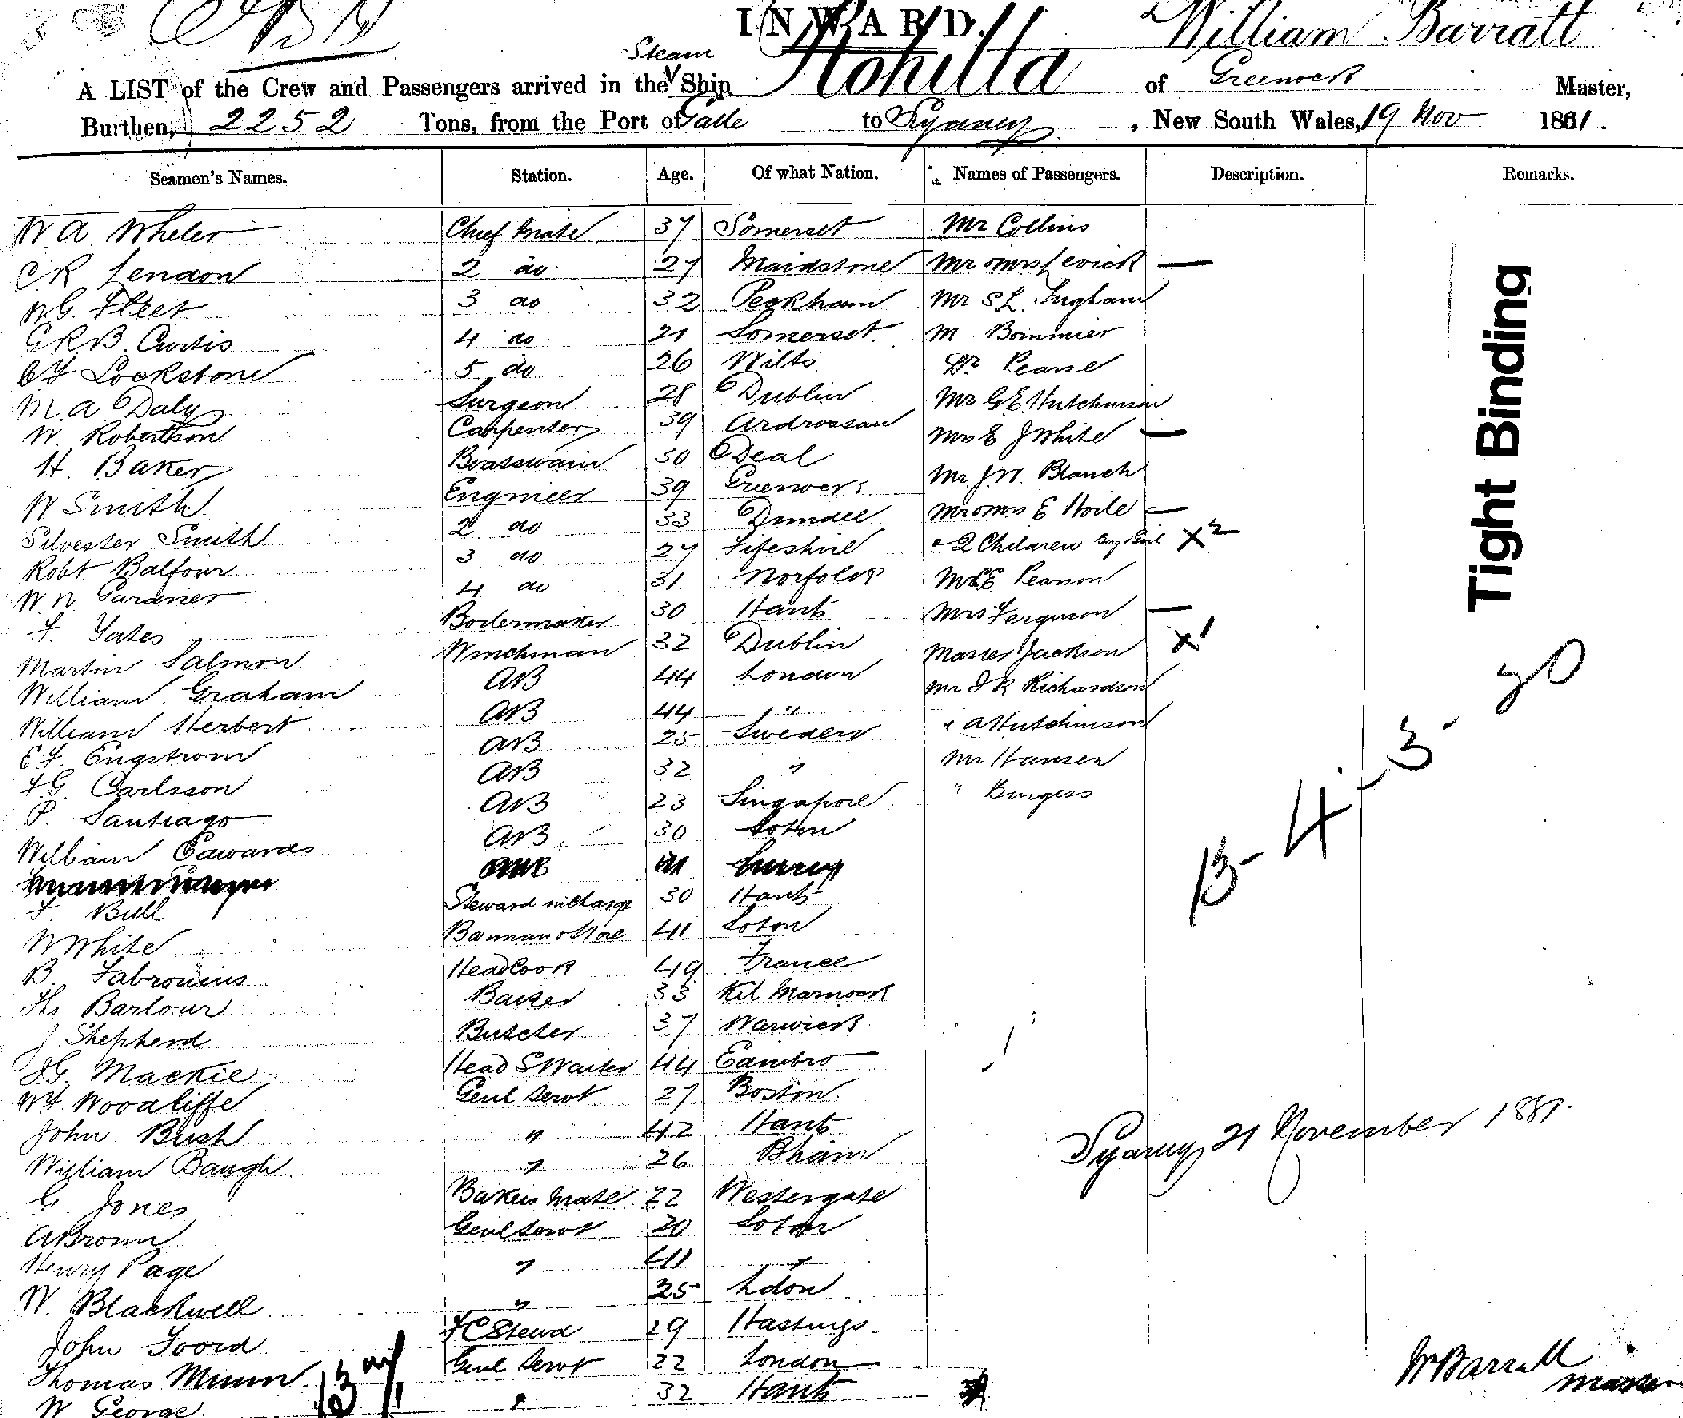 INWARD.
William Barratt
Steam
A LIST of the Crew and Passengers arrived in the Ship Rohilla of Greenock Master,
Burthen, 2252 Tons, from the Port of Galle to Sydney, New South Wales, 19 Nov 1881.
Seamen's Names. Station. Age. Of what Nation. Names of Passengers. Description. Remarks.
W A Wheler Chief Mate 37 Somerset Mr Collins
C R Lendon 2 do 27 Maidstone Mr & Mrs Levick —
W G Fleet 3 do 32 Peckham Mr S L Ingham
G R B Curtis 4 do 21 Somerset M Bommier
Lockstone 5 do 26 Wilts Dr Pearse
M. A Daly Surgeon 28 Dublin Mr G E Hutchinson
W. Robertson Carpenter 39 Ardrossan Mrs E J White —
H. Baker Boatswain 30 Deal Mr J W. Blanch
W Smith Engineer 39 Greenock Mr & Mrs E Hoile —
Silvester Smith 2 do 33 Dundee & 2 Children X2
Robt Balfour 3 do 27 Fifeshire Pearson
W N Gardner 4 do 31 Norfolk Mrs Ferguson —
F. Yates Boilermaker 30 Hants Master Jackson X1
Martin Salmon Winchman 32 Dublin Mr Richardson
William Graham AB 44 London " A Hutchinson
William Herbert AB 44 " Mr Hansen
Engstrom AB 25 Sweden " Burgess
F G. Carlsson AB 32 "
P. Santiago AB 23 Singapore
William Edwards AB 30 Soton
F Bull Steward in Charge 30 Hants
W White 41 Soton
B. Fabronius Head Cook 49 France
Ths Barbour Baker 33 Kil Marnock
J Shepherd Butcher 37 Warwick
J G. Mackie Head S Waiter 44 Edinbro
Woodliffe Genl Servt 27 Boston
John Bush " 42 Hants
William Baugh " 26 Bham
G. Jones Bakers Mate 22 Westergate
A Brown Genl Servt 20 Soton
Henry Page " 41 "
W. Blackwell " 25 Ldon
John Foord Stewd 29 Hastings
Thomas Munn Genl Servt 22 London
W George " 32 Hants
Tight Binding
13-4-3-
Sydney 21 November 1881.
W Barratt
Master